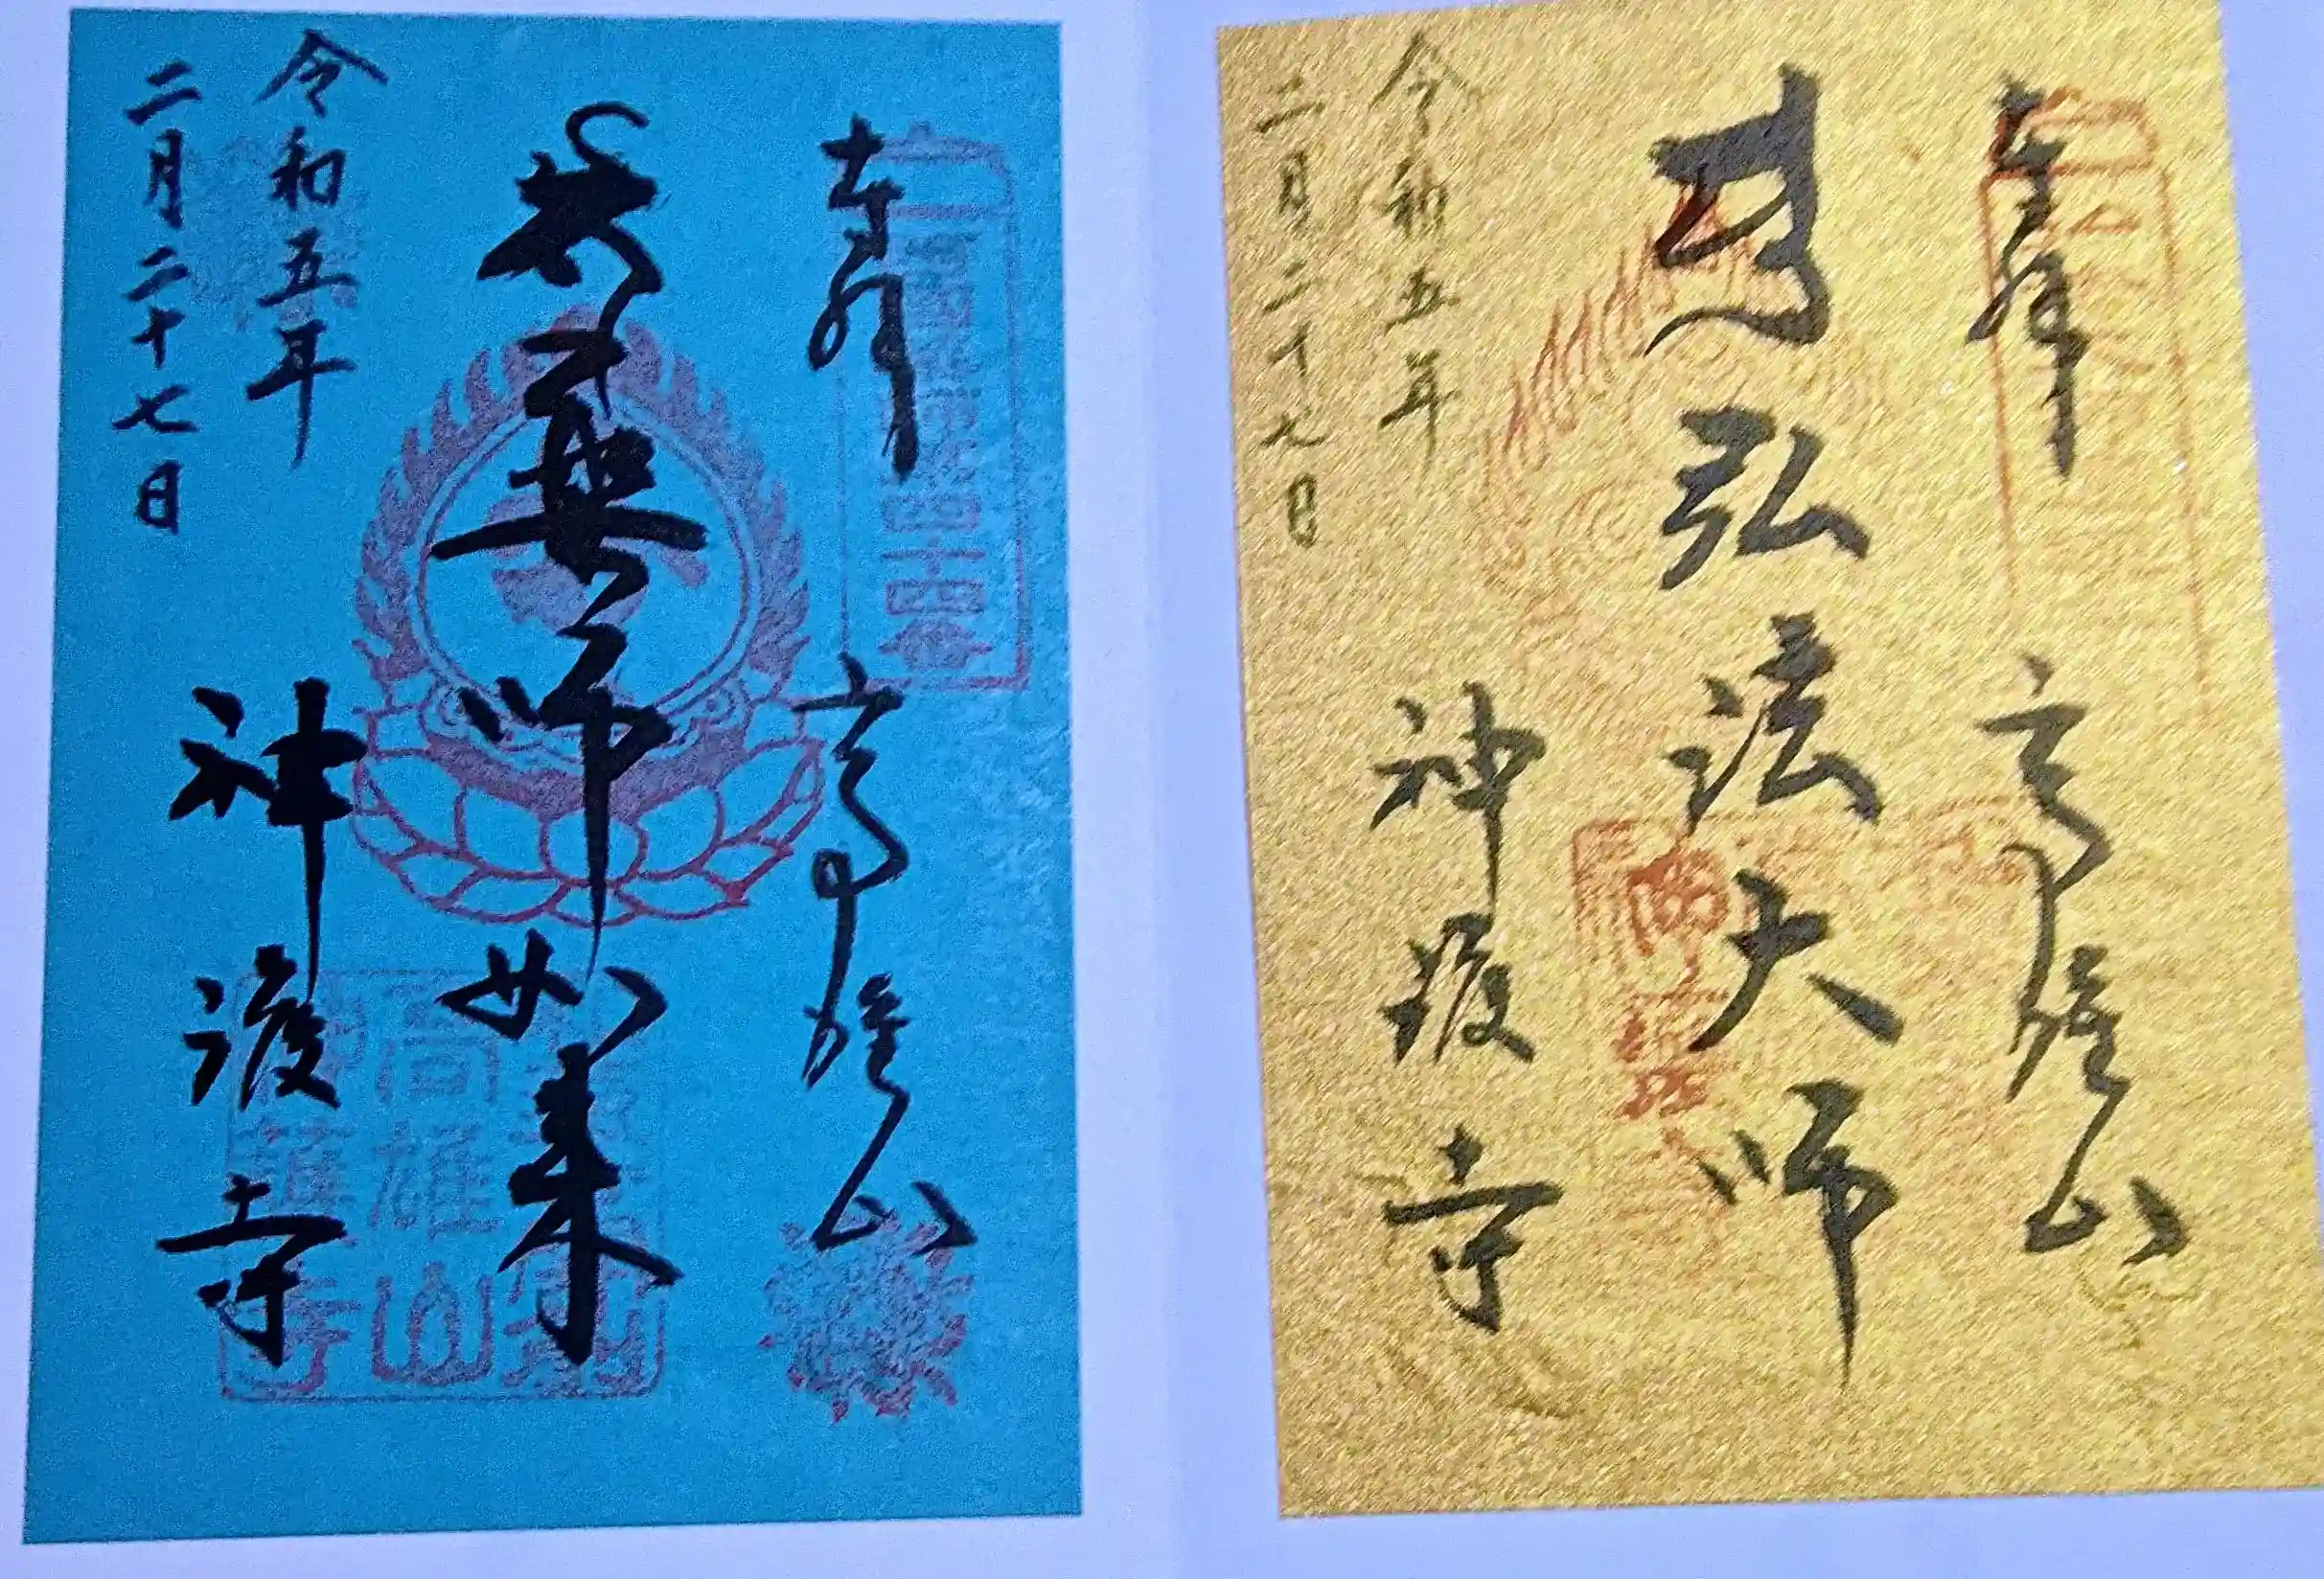 奉拝
高雄山
弘法大師
神護寺
令和五年
二月二十七日
奉拝
高雄山
四十四番
薬師如来
高雄山
神護寺
神護寺
令和五年
二月二十七日